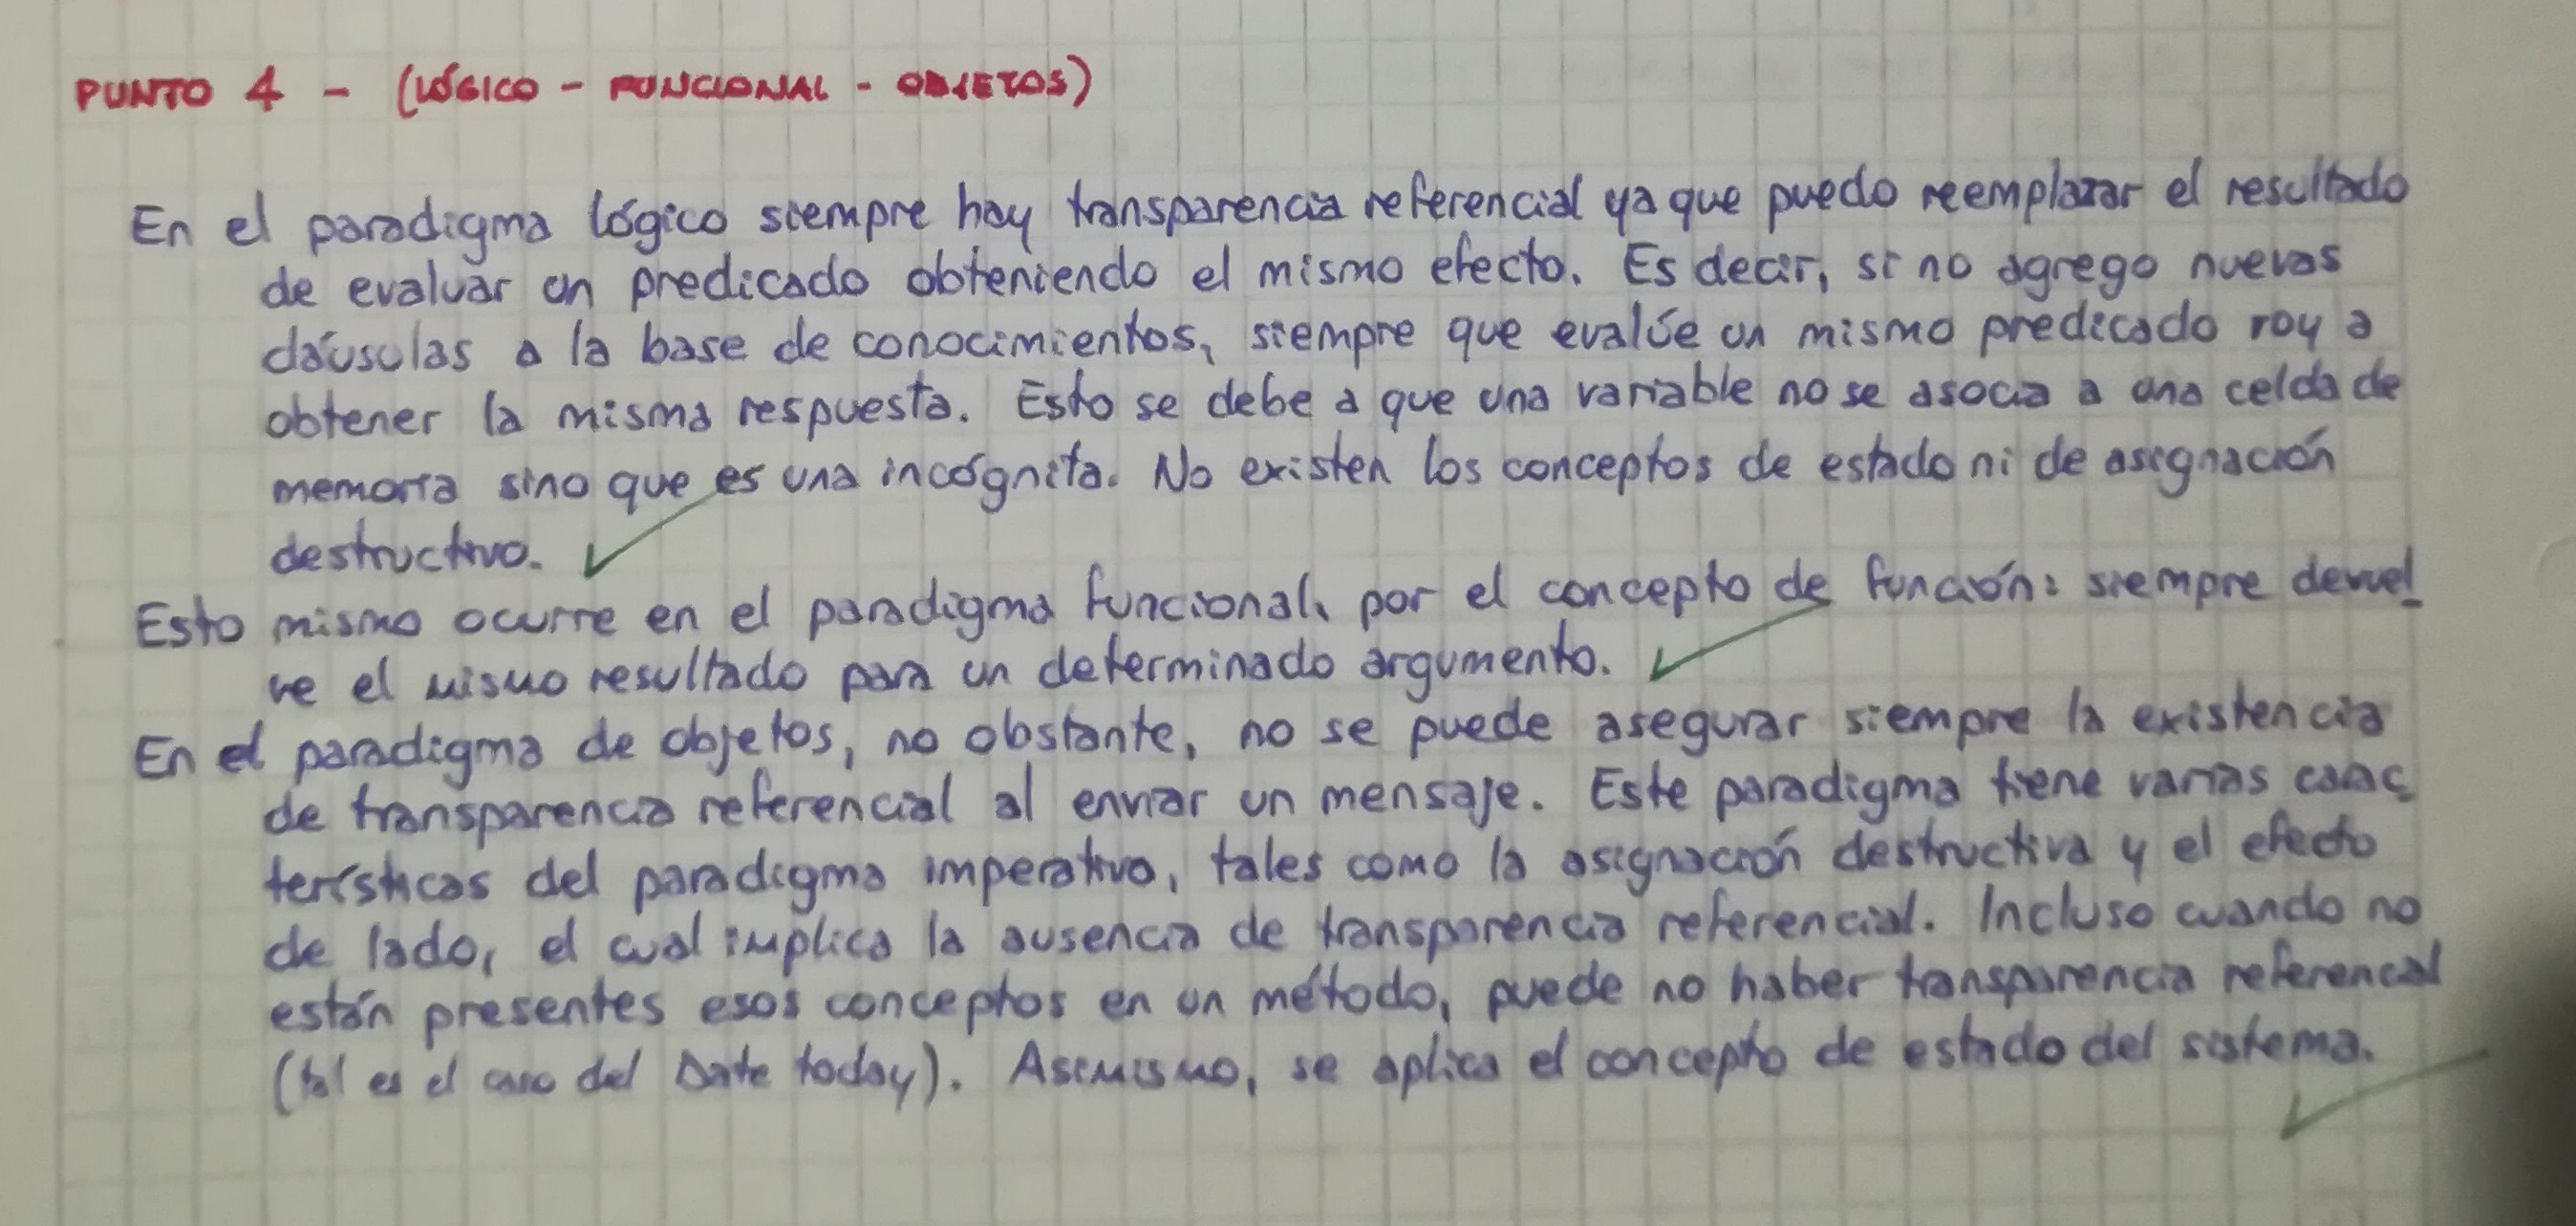 PUNTO 4 - (LÓGICO - FUNCIONAL - OBJETOS)
En el paradigma lógico siempre hay transparencia referencial ya que puedo reemplazar el resultado
de evaluar un predicado obteniendo el mismo efecto. Es decir, si no agrego nuevas
cláusulas a la base de conocimientos, siempre que evalúe un mismo predicado voy a
obtener la misma respuesta. Esto se debe a que una variable no se asocia a una celda de
memoria sino que es una incógnita. No existen los conceptos de estado ni de asignación
destructiva.
Esto mismo ocurre en el paradigma funcional, por el concepto de función: siempre devuel
ve el mismo resultado para un determinado argumento.
En el paradigma de objetos, no obstante, no se puede asegurar siempre la existencia
de transparencia referencial al enviar un mensaje. Este paradigma tiene varias carac
terísticas del paradigma imperativo, tales como la asignación destructiva y el efecto
de lado, el cual implica la ausencia de transparencia referencial. Incluso cuando no
están presentes esos conceptos en un método, puede no haber transparencia referencial
(tal es el caso del Date today). Asimismo, se aplica el concepto de estado del sistema.